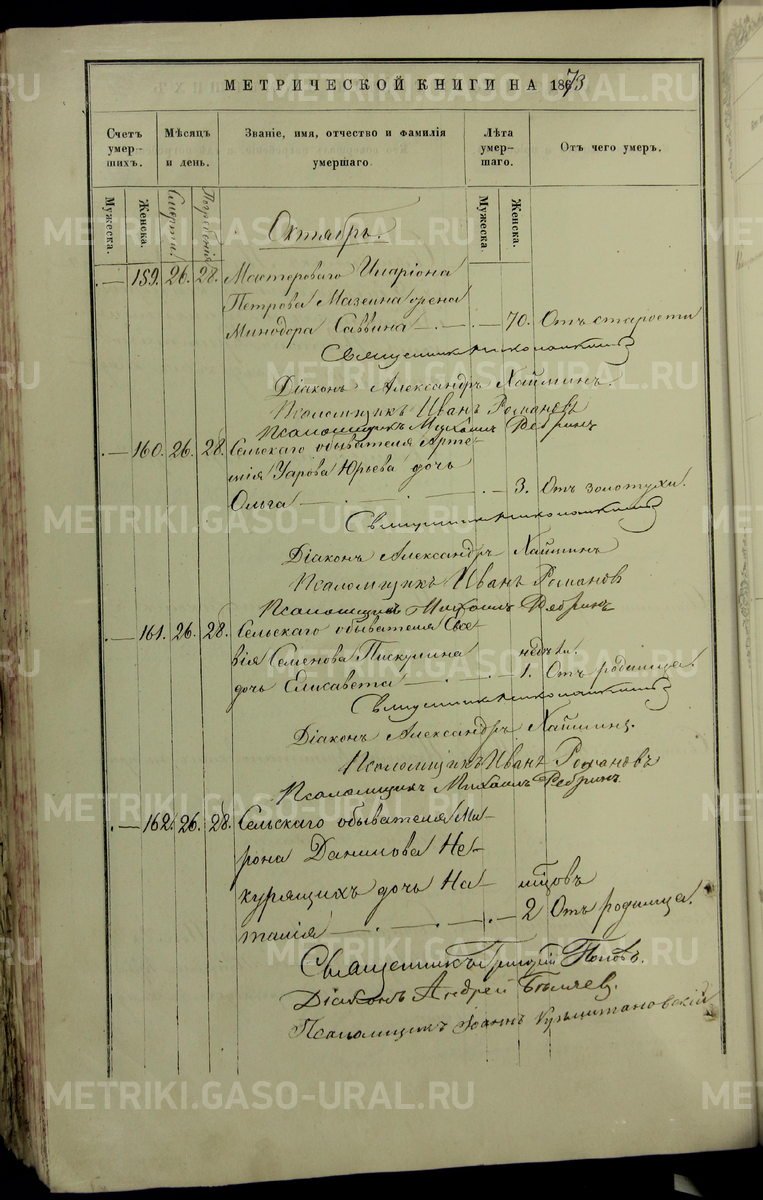 МЕТРИЧЕСКОЙ КНИГИ НА 1873
Счетъ умер-шихъ.
Мѣсяцъ и день.
Званіе, имя, отчество и фамилія умершаго.
Лѣта умер-шаго.
Отъ чего умеръ.
Мужеска.
Женска.
Смерти.
Погребенія
Мужеска
Женска.
Октябрь.
159. 26. 28. Мастероваго Иларіона
Петрова Мазеина жена
Минодора Саввина 70. Отъ старости
Священникъ
Діаконъ Александръ
Псаломщикъ Иванъ Романовъ
Псаломщикъ Михаилъ Ребринъ
160. 26. 28. Сельскаго обывателя Арте-
мія Уарова Юрьева дочь
Ольга 3. Отъ золотухи.
Священникъ
Діаконъ Александръ
Псаломщикъ Иванъ Романов
Псаломщикъ Михаилъ Ребринъ
161. 26. 28. Сельскаго обывателя Евсе-
вія Семенова Пискулина недѣли.
дочь Елисавета 1. Отъ родимца.
Священникъ
Діаконъ Александръ
Псаломщикъ Иванъ Романовъ
Псаломщикъ Михаилъ Ребринъ
162. 26. 28. Сельскаго обывателя Ми-
рона Данилова Не-
курящихъ дочь На- мѣсяцовъ
талія 2 Отъ родимца.
Священникъ Григорій Поповъ.
Діаконъ Андрей Бѣляев.
Псаломщикъ Іоаннъ
METRIKI.GASO-URAL.RU